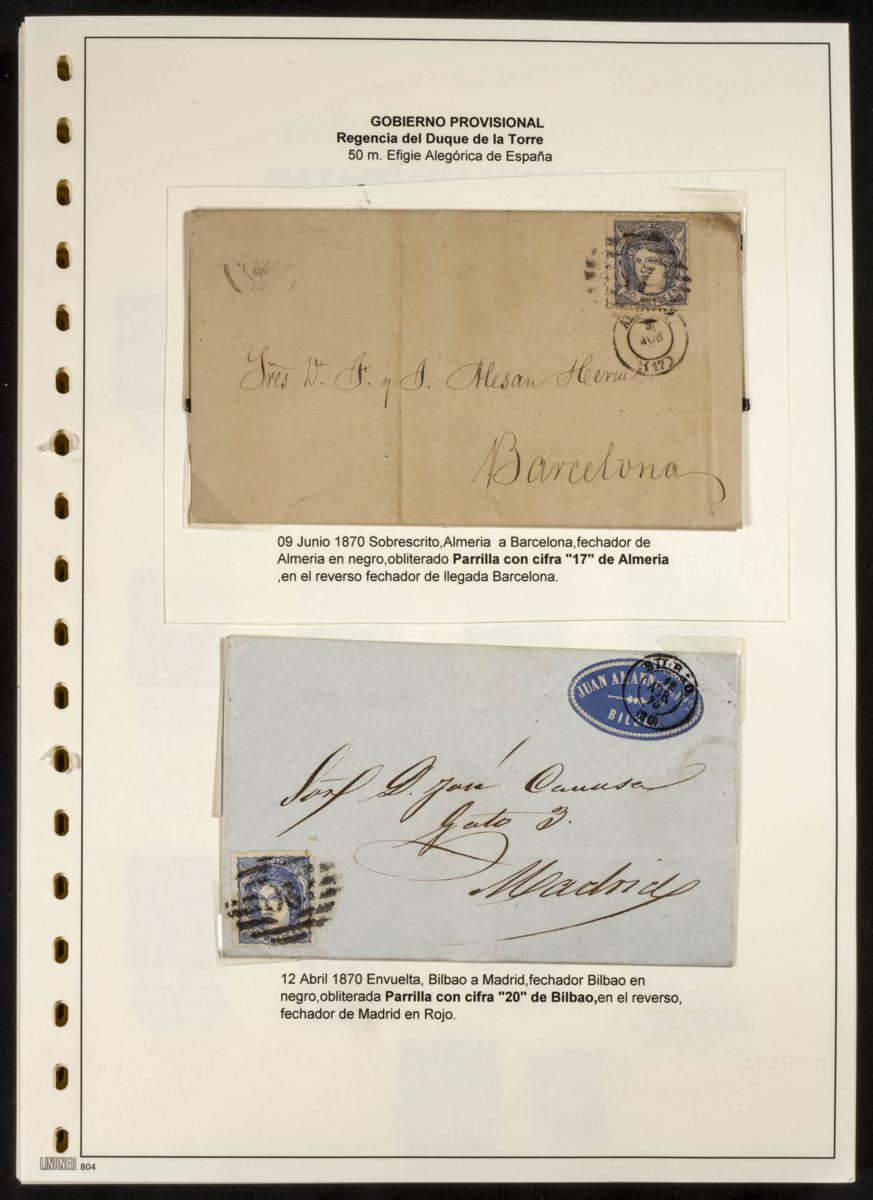 GOBIERNO PROVISIONAL
Regencia del Duque de la Torre
50 m. Efigie Alegórica de España
COMUNICACIONES
50. MILS DE E
(17)
Sres D. F. y J. Alesan Herm
Barcelona
09 Junio 1870 Sobrescrito,Almeria a Barcelona,fechador de
Almeria en negro,obliterado Parrilla con cifra "17" de Almeria
,en el reverso fechador de llegada Barcelona.
JUAN AMANN
BIL
BILBAO
12
ABR
70
Sor D. José Canusa
Gato 3.
Madrid
12 Abril 1870 Envuelta, Bilbao a Madrid,fechador Bilbao en
negro,obliterada Parrilla con cifra "20" de Bilbao,en el reverso,
fechador de Madrid en Rojo.
LINDNER 804